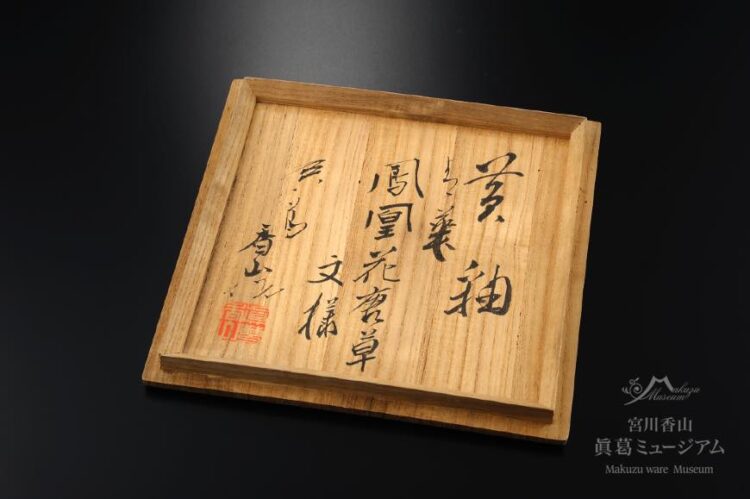 黄釉
青華
鳳凰花唐草
文様
真葛
香山作
眞葛
香山
Makuzu
Museum
宮川香山
眞葛ミュージアム
Makuzu ware Museum